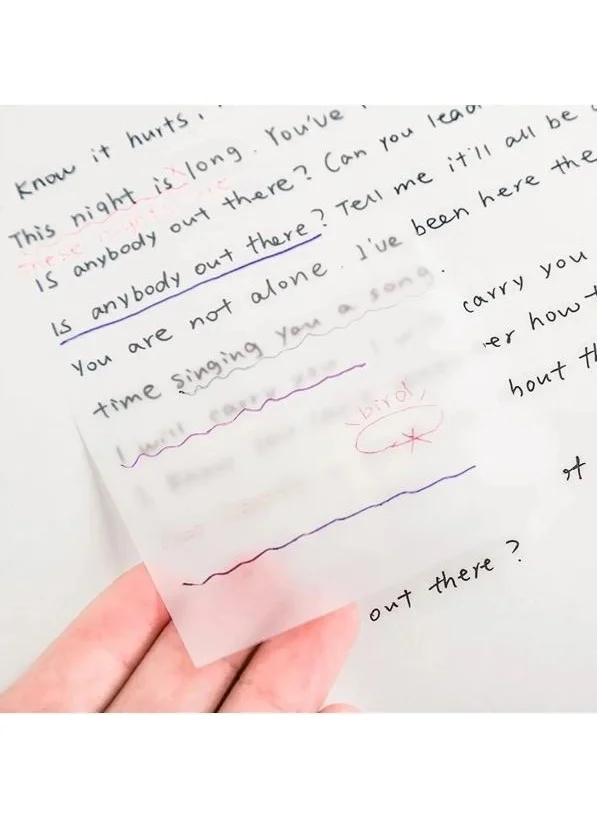 Know it hurts,
This night is long. You've
IS anybody out there? Can you lead
Is anybody out there? Tell me it'll all be
You are not alone. I've been here the
time singing you a song.
I will carry you carry you
er how
bird
bout th
out there?